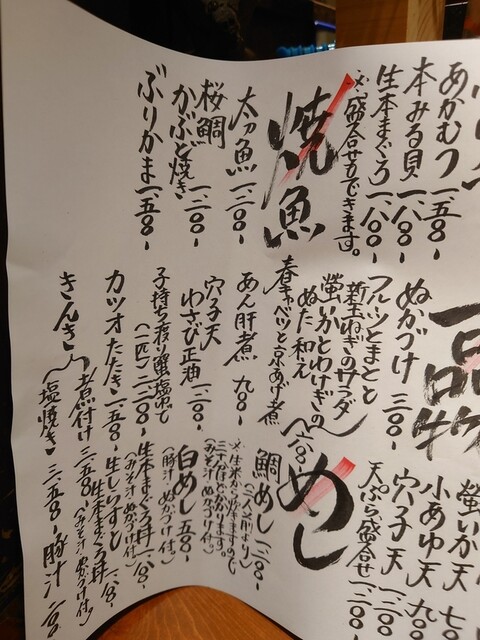 あかむつ 一、五〇〇-
本みる貝 一、八〇〇-
生本まぐろ 一、八〇〇-
※盛合せもできます。
焼魚
太刀魚 一、二〇〇-
桜鯛
かぶと焼き 一、二〇〇-
ぶりかま 一、五〇〇-
一品物
ぬかづけ 三〇〇-
フルーツとまとと
新玉ねぎのサラダ
螢いかとわけぎの
ぬた和え
春キャベツと京あげ煮
あん肝煮 九〇〇-
穴子天
わさび正油 一、二〇〇-
子持ち渡り蟹塩ゆで
(一匹) 二、二〇〇-
カツオたたき 一、五〇〇-
きんき
煮付け
塩焼き
三、五〇〇-
螢いか天 七
小あゆ天 九〇〇
穴子天 一、二〇〇
天ぷら盛合せ 一、二〇〇
めし
鯛めし 一、二〇〇-
(二人前より)
※生米から炊きますので
三十分ほどかかります。
(みそ汁・ぬかづけ付)
白めし 五〇〇-
(豚汁・ぬかづけ付)
生本まぐろ丼 一、八〇〇-
(みそ汁・ぬかづけ付)
生しらすと
生本まぐろ丼 一、八〇〇-
(みそ汁・ぬかづけ付)
豚汁